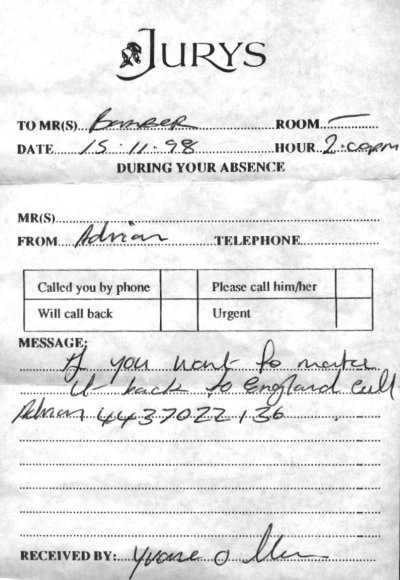 JURYS
TO MR(S) Bamber ROOM —
DATE 15.11.98 HOUR 2.00pm
DURING YOUR ABSENCE
MR(S)
FROM Adrian TELEPHONE
Called you by phone Please call him/her
Will call back Urgent
MESSAGE:
If you want to make
it back to England call
Adrian 4437022136
RECEIVED BY: Yvonne O